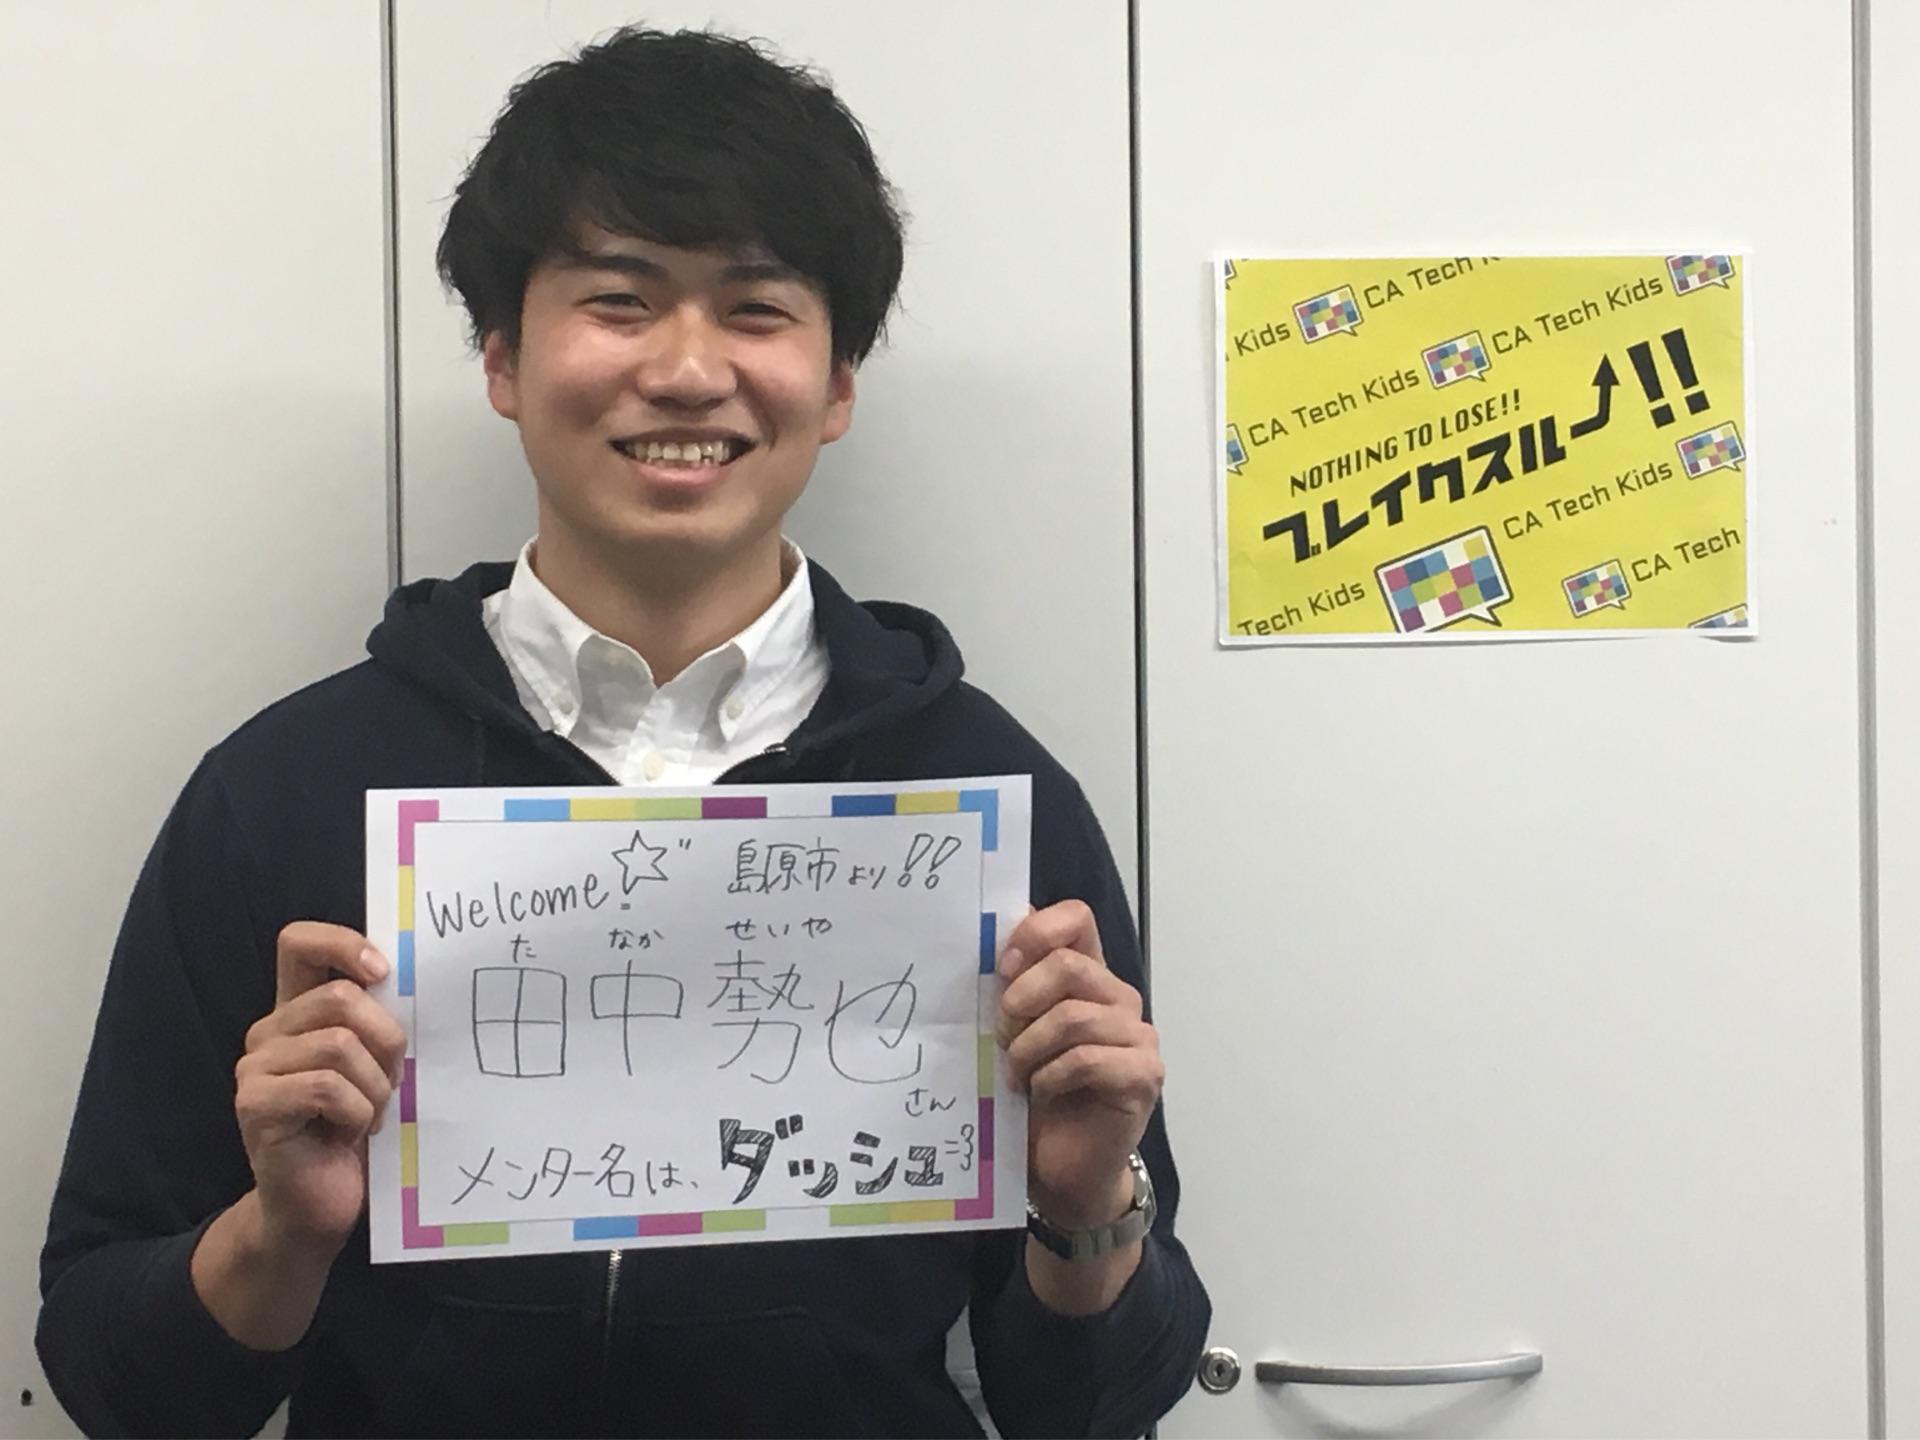 Welcome! 島原市より!!
た なか せいや
田中勢也
さん
メンター名は、ダッシュ=3
CA Tech K
Kids CA Tech Kids
CA Tech Kids
NOTHING TO LOSE!!
ブレイクスルー!!
CA Tech Kids
Tech Kids CA Tech